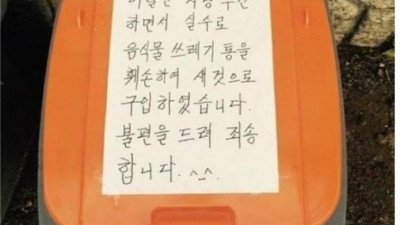 하면서 실수로
음식물 쓰레기 통을
훼손하여 새것으로
구입하였습니다.
불편을 드려 죄송
합니다. ^.^.